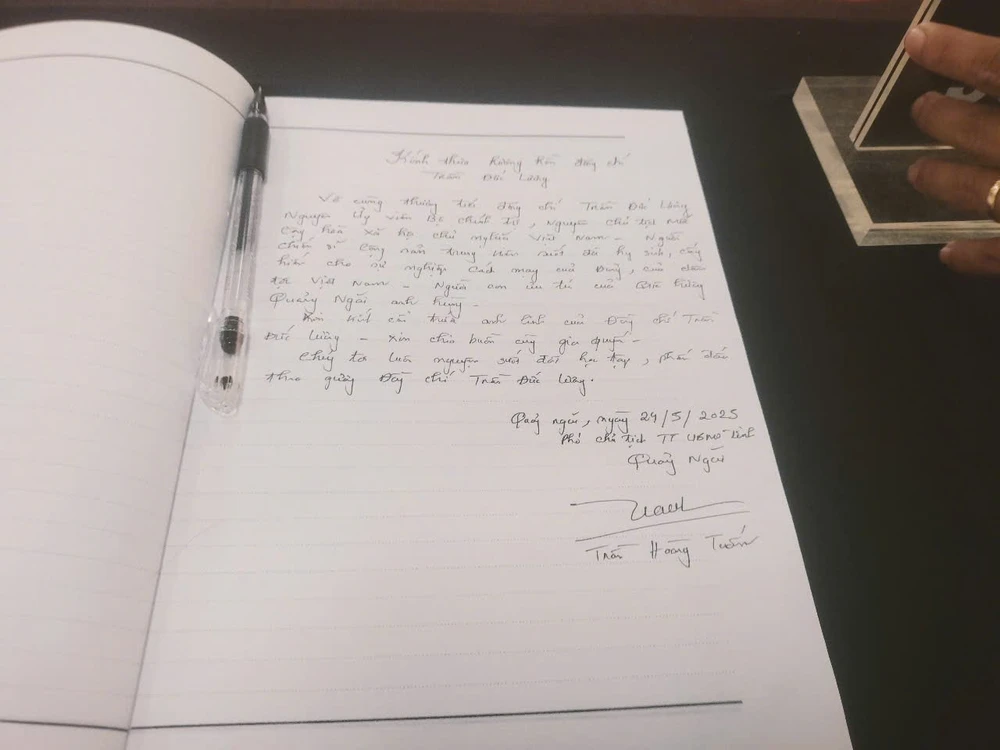 Kính thưa hương hồn đồng chí
Trần Đức Lương
Vô cùng thương tiếc đồng chí Trần Đức Lương,
Nguyên Ủy viên Bộ Chính trị, Nguyên chủ tịch nước
Cộng hòa xã hội chủ nghĩa Việt Nam - Người
chiến sĩ Cộng sản trung kiên suốt đời hy sinh, cống
hiến cho sự nghiệp Cách mạng của Đảng, của dân
tộc Việt Nam - Người con ưu tú của quê hương
Quảng Ngãi anh hùng -
Xin kính cẩn trước anh linh của Đồng chí Trần
Đức Lương - xin chia buồn cùng gia quyến -
Chúng tôi luôn nguyện suốt đời học tập, phấn đấu
theo gương Đồng chí Trần Đức Lương.
Quảng ngãi, ngày 24/5/2025
Phó chủ tịch TT UBND tỉnh
Quảng Ngãi
Trần Hoàng Tuấn